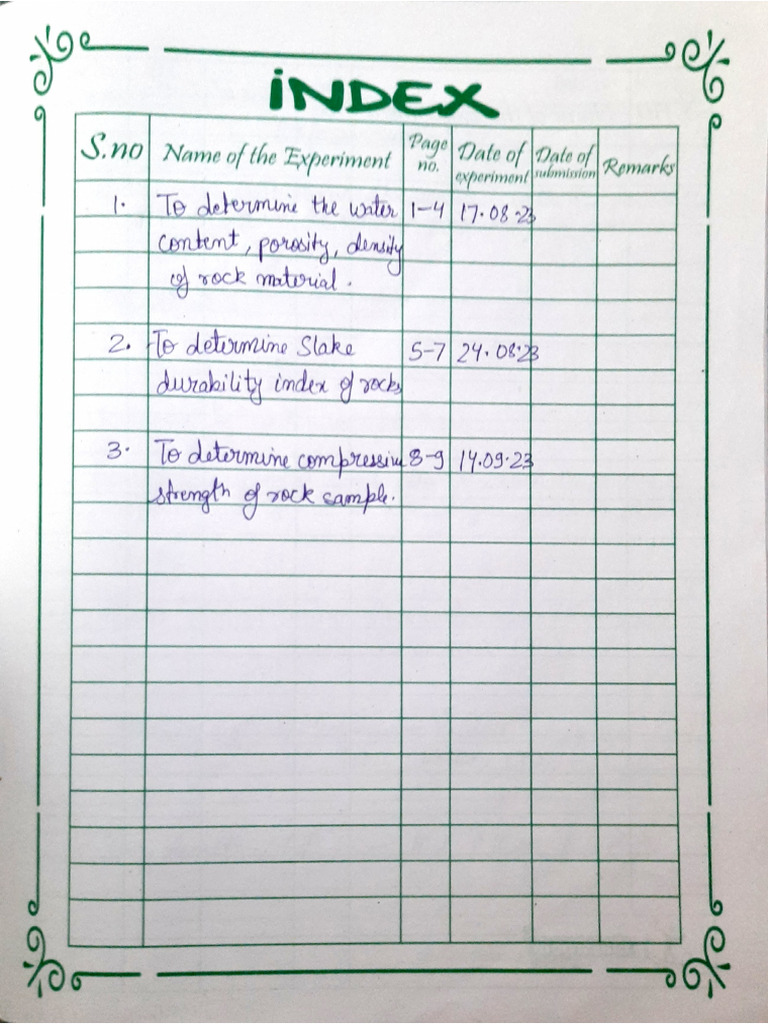 INDEX
S.no Name of the Experiment Page no. Date of experiment Date of submission Remarks
1. To determine the water 1-4 17.08.23
content, porosity, density
of rock material.
2. To determine Slake 5-7 24.08.23
durability index of rocks
3. To determine compressive 8-9 14.09.23
strength of rock sample.